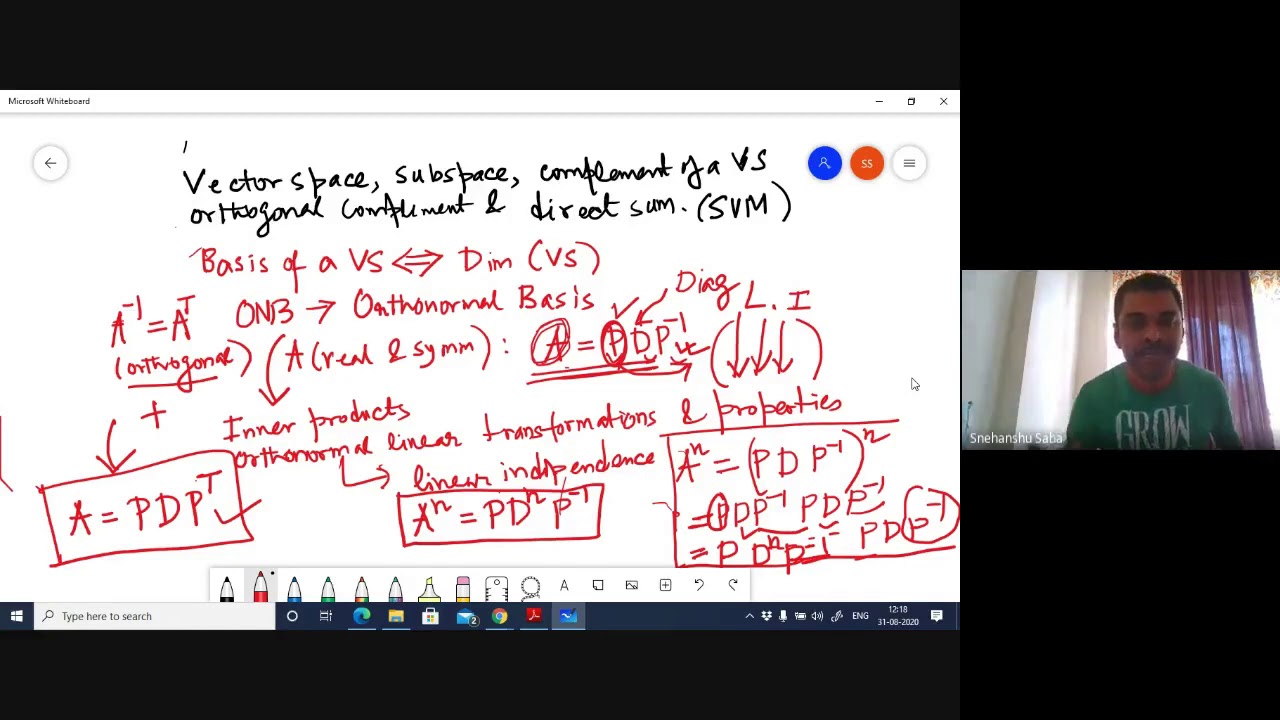 Microsoft Whiteboard
Vector space, subspace, complement of a VS
orthogonal complement & direct sum. (SVM)
SS
Basis of a VS ⟺ Dim (VS)
A⁻¹ = Aᵀ
(orthogonal)
ONB → Orthonormal Basis
Diag
L. I
A (real & symm) : A = PDP⁻¹
+
Inner products
orthonormal linear transformations & properties
linear independence
A = PDPᵀ
Aⁿ = PDⁿP⁻¹
Aⁿ = (PDP⁻¹)ⁿ
= PDP⁻¹ PDP⁻¹ PDP⁻¹
= P Dⁿ P⁻¹
GROW
Snehanshu Saba
A
Type here to search
2
ENG
12:18
31-08-2020